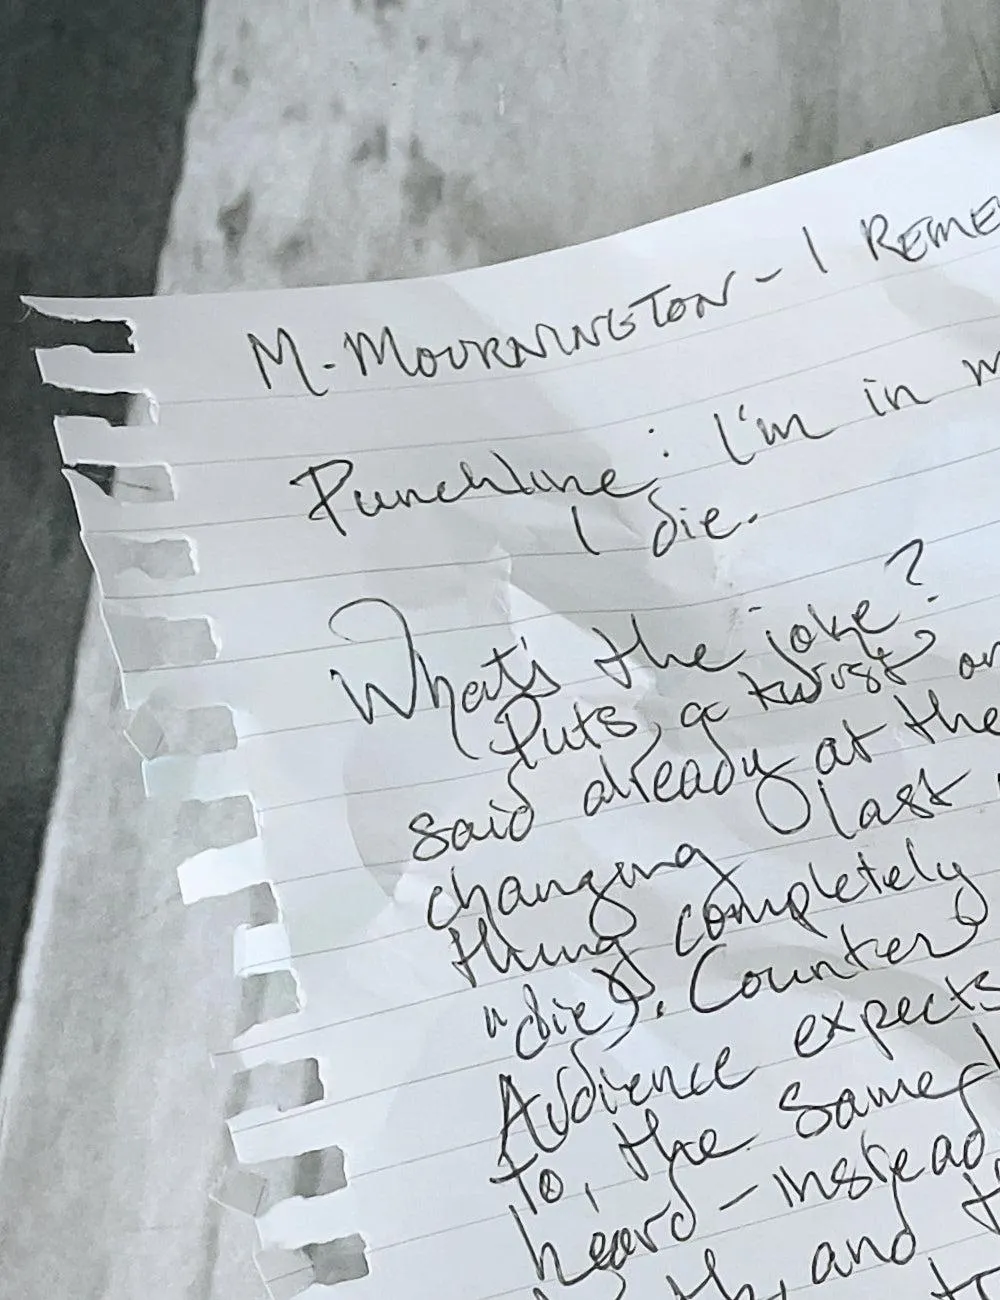 M. MOURNINGTON – I REME
Punchline: I'm in m
I die.
What's the joke?
(Puts a twist on
said already at the
changing last
thing completely
"die"). Counter
Audience expects
to, the same
heard – instead
and